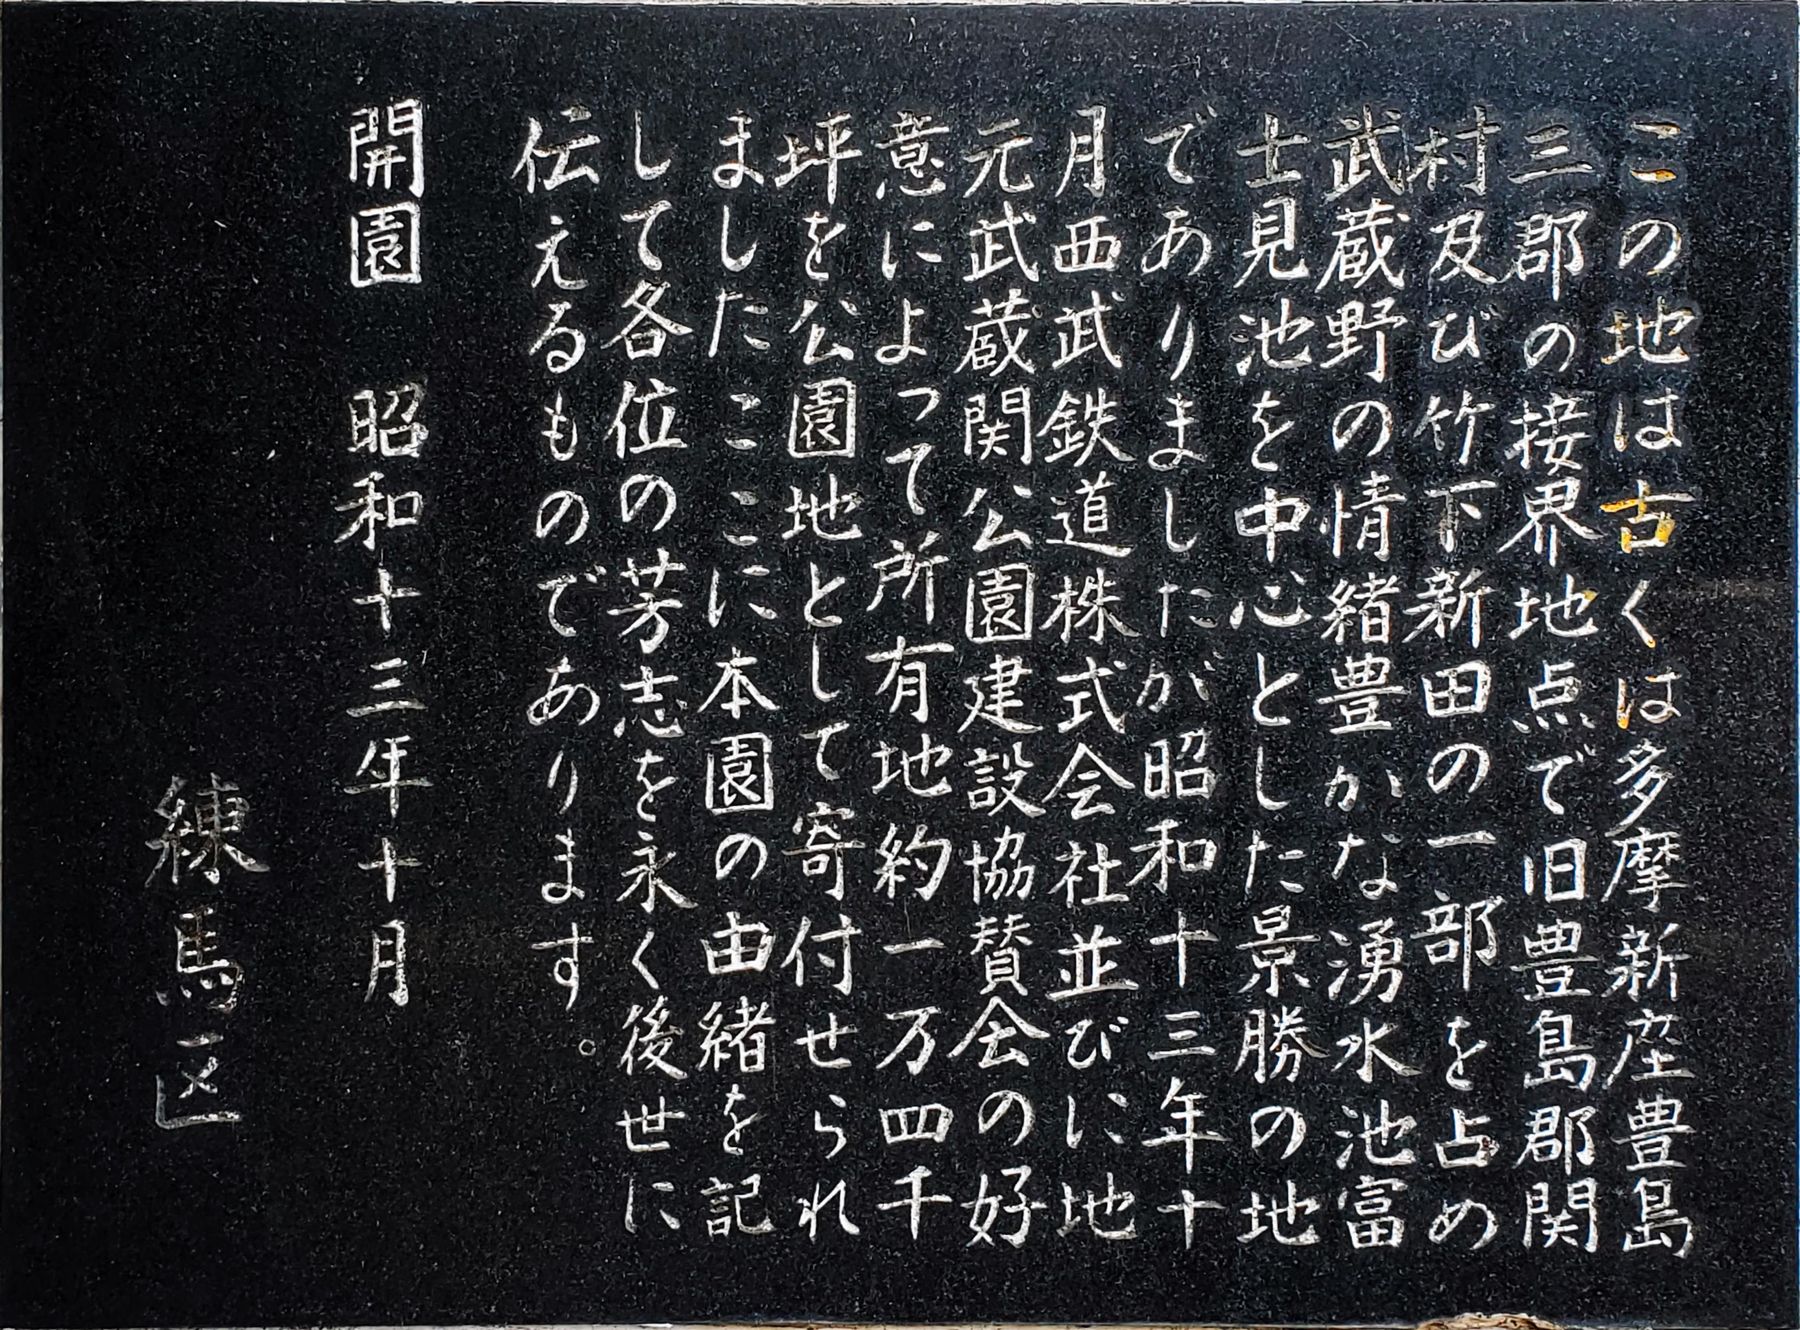 この地は古くは多摩新座豊島
三郡の接界地点で旧豊島郡関
村及び竹下新田の一部を占め
武蔵野の情緒豊かな湧水池富
士見池を中心とした景勝の地
でありましたが昭和十三年十
月西武鉄道株式会社並びに地
元武蔵関公園建設協賛会の好
意によって所有地約一万四千
坪を公園地として寄付せられ
ましたここに本園の由緒を記
して各位の芳志を永く後世に
伝えるものであります。
開園 昭和十三年十月
練馬区